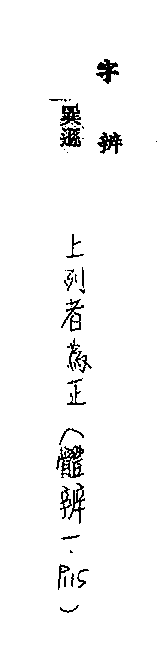 字辨
上列者為正（體辨一．P115）